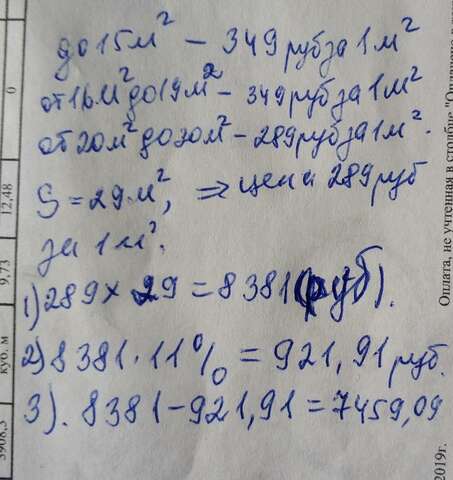 до 15 м² – 349 руб за 1 м²
от 16 м² до 19 м² – 349 руб за 1 м²
от 20 м² до 30 м² – 289 руб за 1 м².
S = 29 м², ⇒ цена 289 руб
за 1 м².
1) 289 × 29 = 8381 (руб).
2) 8381 · 11% = 921,91 руб.
3). 8381 – 921,91 = 7459,09
0
12,48
9,73
куб. м
3908,3
Оплата, не учтенная в столбце "Оплачено в
2019г.